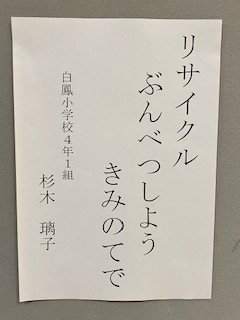 リサイクル
ぶんべつしよう
きみのてで
白鳳小学校４年１組
杉木　璃子